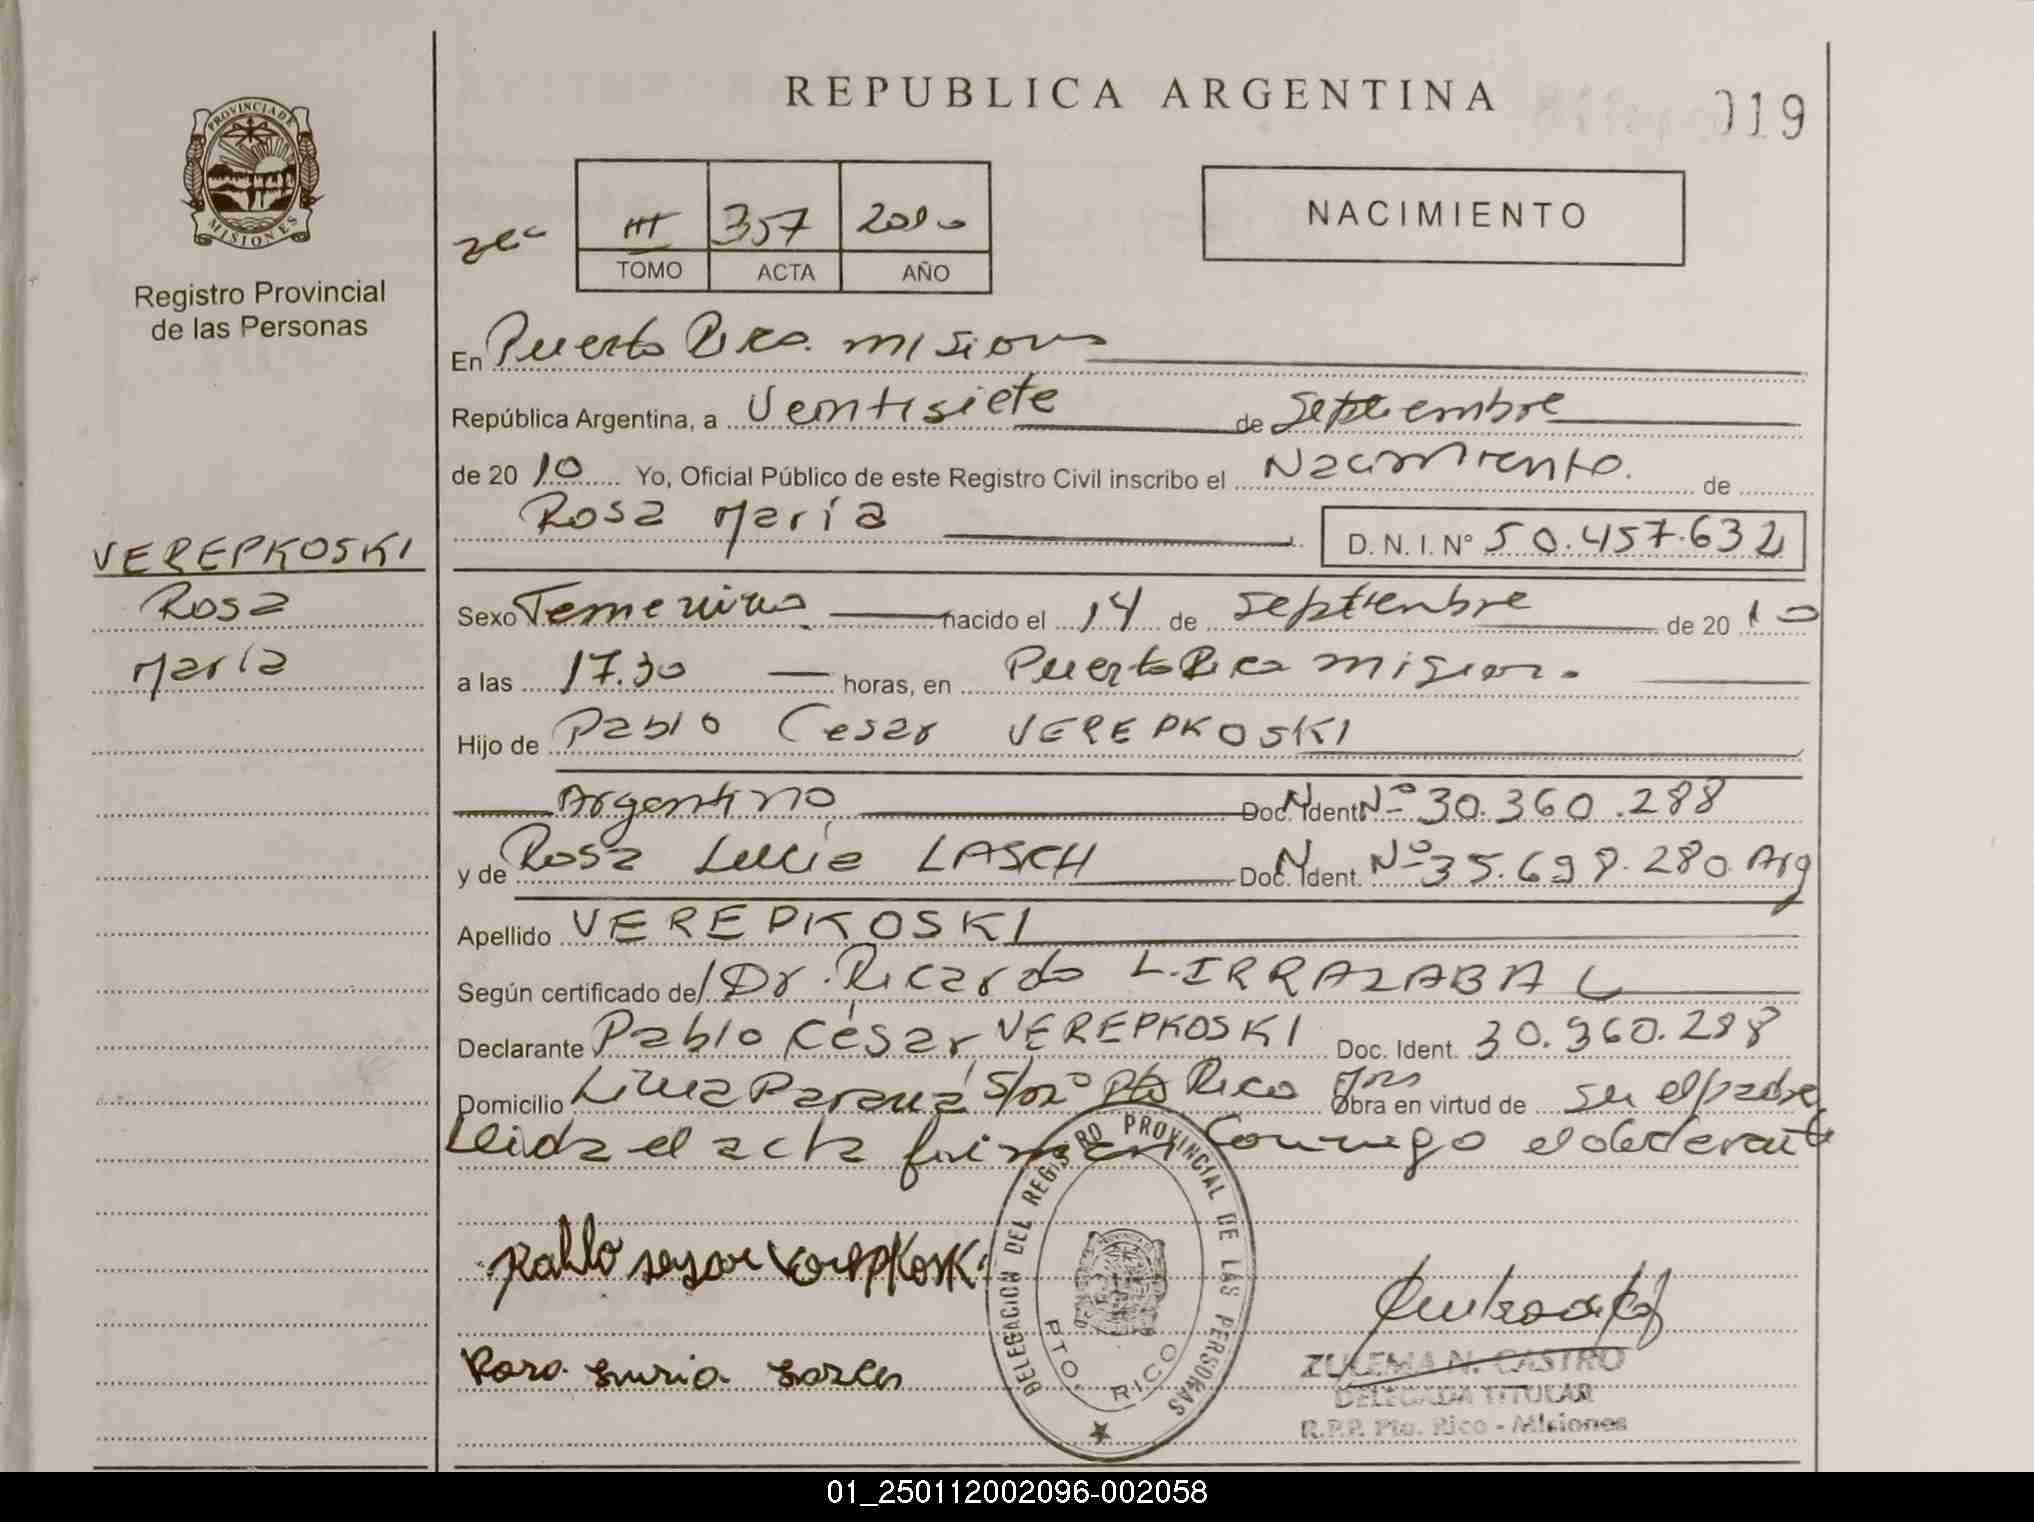 REPUBLICA ARGENTINA
019
PROVINCIA DE
MISIONES
Registro Provincial
de las Personas
III 357 2010
TOMO ACTA AÑO
NACIMIENTO
En Puerto Rico. Misiones
República Argentina, a Ventisiete de Septiembre
de 20 10 Yo, Oficial Público de este Registro Civil inscribo el Nacimiento. de
Rosa María D. N. I. N° 50.457.632
VEREPKOSKI
Rosa
María
Sexo Femenino nacido el 14 de Septiembre de 20 10
a las 17.30 horas, en Puerto Rico Misiones.
Hijo de Pablo Cesar VEREPKOSKI
Argentino Doc. Ident. Nº 30.360.288
y de Rosa Lucía LASCH Doc. Ident. Nº 35.698.280 Arg
Apellido VEREPKOSKI
Según certificado de/ Dr. Ricardo L. IRRAZABAL
Declarante Pablo César VEREPKOSKI Doc. Ident. 30.360.288
Domicilio Línea Paraná S/nº Pto Rico Mnes Obra en virtud de ser el padre
Leida el acta firman conmigo el declarante
Pablo sesar VerepKosKi
Rosa Lucia Lasch
DELEGACION DEL REGISTRO PROVINCIAL DE LAS PERSONAS
PTO. RICO
ZULEMA N. CASTRO
DELEGADA TITULAR
R.P.P. Pto. Rico - Misiones
01_250112002096-002058